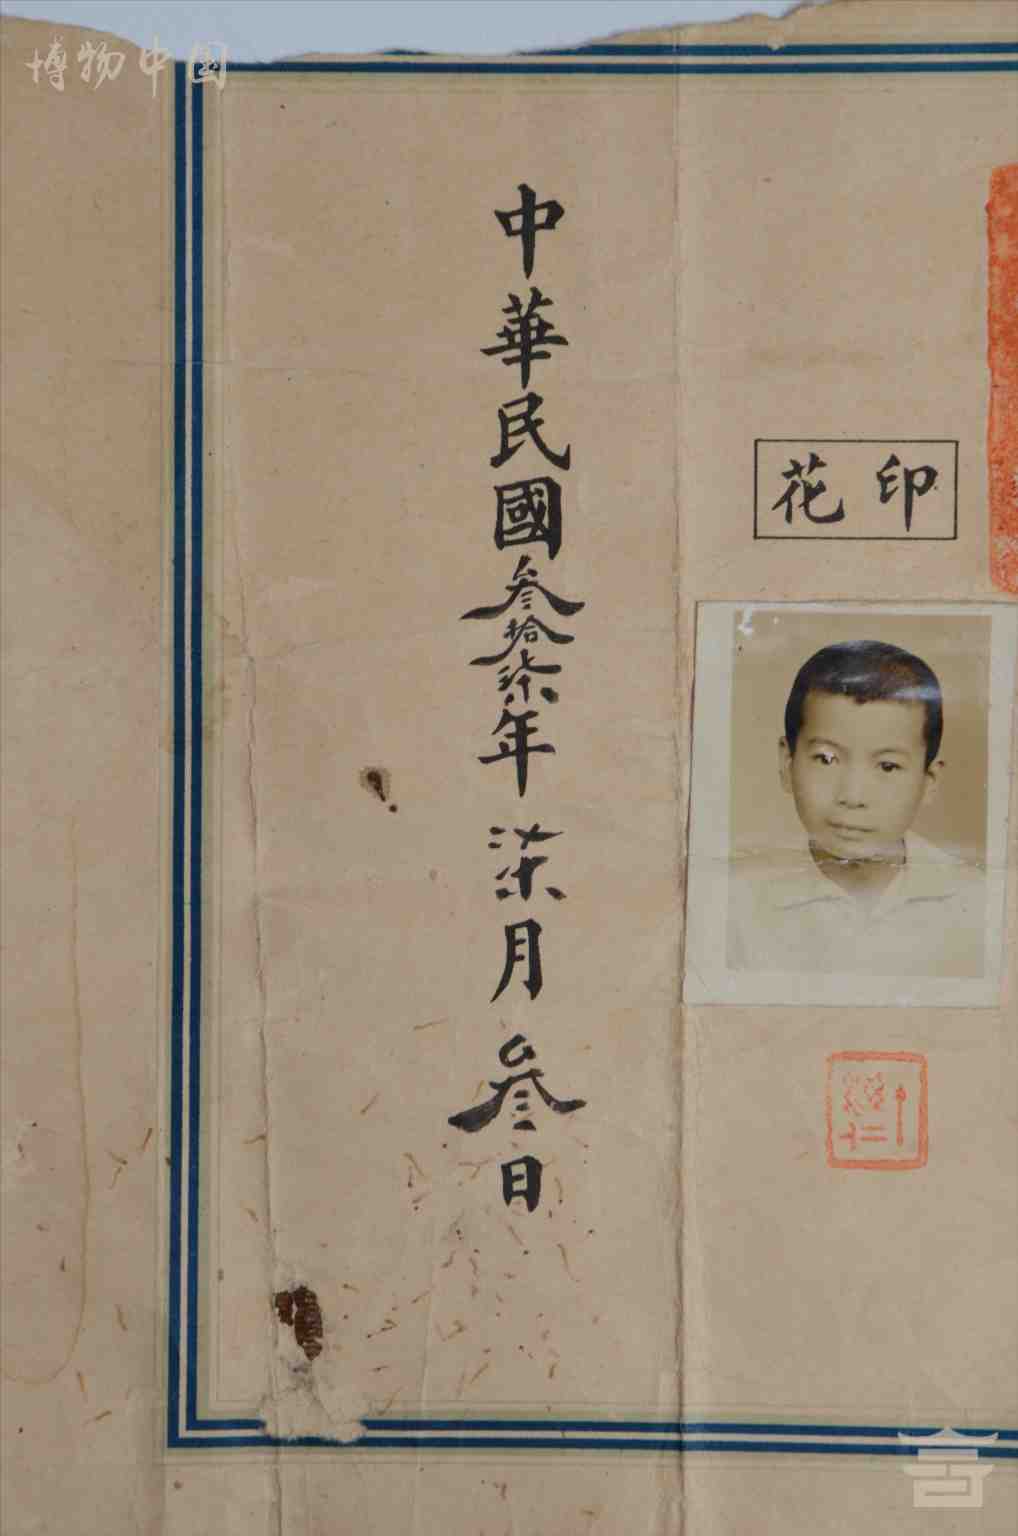 博物中国
印花
中華民國叁拾柒年柒月叁日